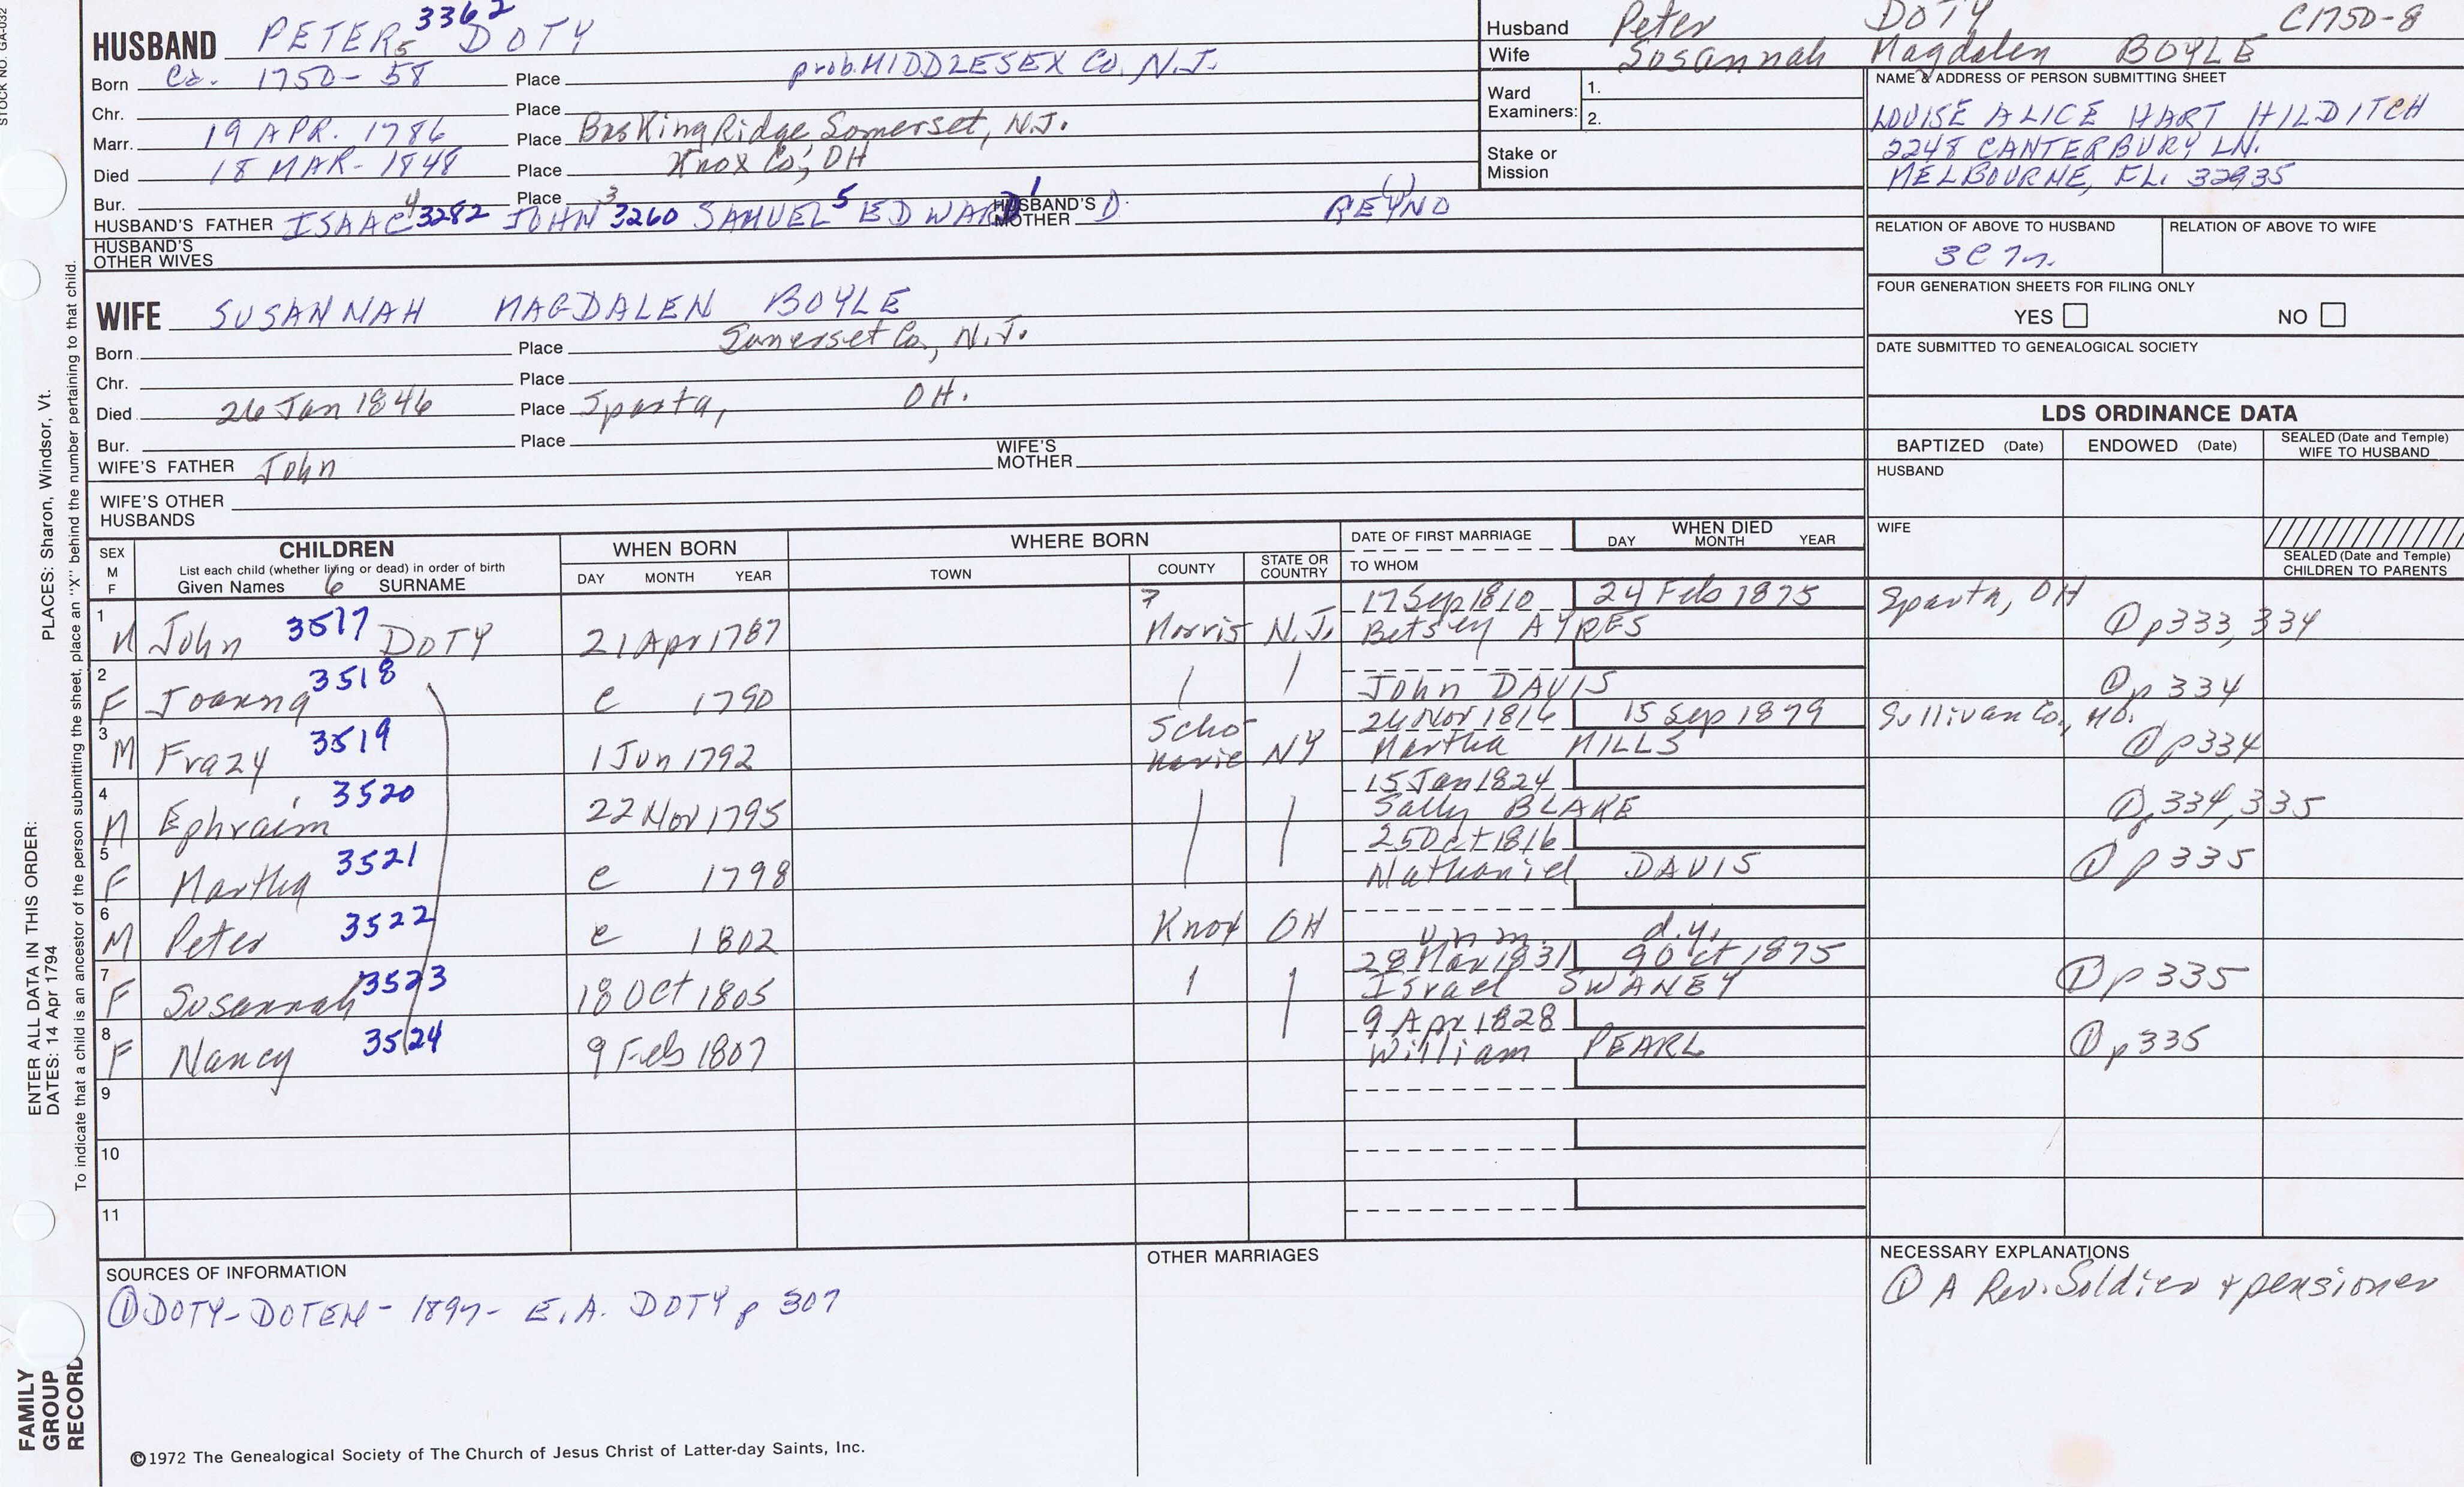 STOCK NO. GA-032
HUSBAND PETER 5 3362 DOTY
Born Ca. 1750-58 Place prob. MIDDLESEX Co. N.J.
Chr. Place
Marr. 19 APR. 1786 Place Basking Ridge Somerset, N.J.
Died 18 MAR- 1848 Place Knox Co, OH
Bur. Place
HUSBAND'S FATHER ISAAC 4 3282 JOHN 3 3260 SAMUEL 5 EDWARD 1 HUSBAND'S MOTHER D. REYNO ( )
HUSBAND'S OTHER WIVES
WIFE SUSANNAH MAGDALEN BOYLE
Born Place Somerset Co., N.J.
Chr. Place
Died 26 Jan 1846 Place Sparta, OH.
Bur. Place
WIFE'S FATHER John WIFE'S MOTHER
WIFE'S OTHER HUSBANDS
Husband Peter DOTY C1750-8
Wife Susannah Magdalen BOYLE
Ward Examiners: 1.
2.
Stake or Mission
NAME & ADDRESS OF PERSON SUBMITTING SHEET
LOUISE ALICE HART HILDITCH
2248 CANTERBURY LN.
MELBOURNE, FL. 32935
RELATION OF ABOVE TO HUSBAND RELATION OF ABOVE TO WIFE
FOUR GENERATION SHEETS FOR FILING ONLY
YES NO
DATE SUBMITTED TO GENEALOGICAL SOCIETY
LDS ORDINANCE DATA
BAPTIZED (Date) ENDOWED (Date) SEALED (Date and Temple) WIFE TO HUSBAND
HUSBAND
WIFE
SEALED (Date and Temple) CHILDREN TO PARENTS
SEX M F
CHILDREN
List each child (whether living or dead) in order of birth
Given Names 6 SURNAME
WHEN BORN
DAY MONTH YEAR
WHERE BORN
TOWN COUNTY STATE OR COUNTRY
DATE OF FIRST MARRIAGE
TO WHOM
WHEN DIED
DAY MONTH YEAR
1 M John 3517 DOTY 21 Apr 1787 ? Morris N.J. 17 Sep 1810 24 Feb 1875 Sparta, OH
Betsey AYRES ① p333, 334
2 F Joanna 3518 c 1790 John DAVIS ① p 334
3 M Frazy 3519 1 Jun 1792 Schoharie NY 24 Nov 1816 15 Sep 1879 Sullivan Co., MO.
Martha MILLS ① p334
4 M Ephraim 3520 22 Nov 1795 15 Jan 1824
Sally BLAKE ① p 334, 335
5 F Martha 3521 c 1798 25 Oct 1816
Nathaniel DAVIS ① p 335
6 M Peter 3522 c 1802 Knox OH unm. d.y.
7 F Susannah 3523 18 Oct 1805 28 Mar 1831 9 Oct 1875
Israel SWANEY ① p 335
8 F Nancy 3524 9 Feb 1807 9 Apr 1828
William PEARL ① p335
9
10
11
SOURCES OF INFORMATION
① DOTY-DOTEN- 1897- E.A. DOTY p 307
OTHER MARRIAGES
NECESSARY EXPLANATIONS
① A Rev. Soldier & pensioner
©1972 The Genealogical Society of The Church of Jesus Christ of Latter-day Saints, Inc.
FAMILY GROUP RECORD
ENTER ALL DATA IN THIS ORDER:
DATES: 14 Apr 1794 PLACES: Sharon, Windsor, Vt.
To indicate that a child is an ancestor of the person submitting the sheet, place an "X" behind the number pertaining to that child.